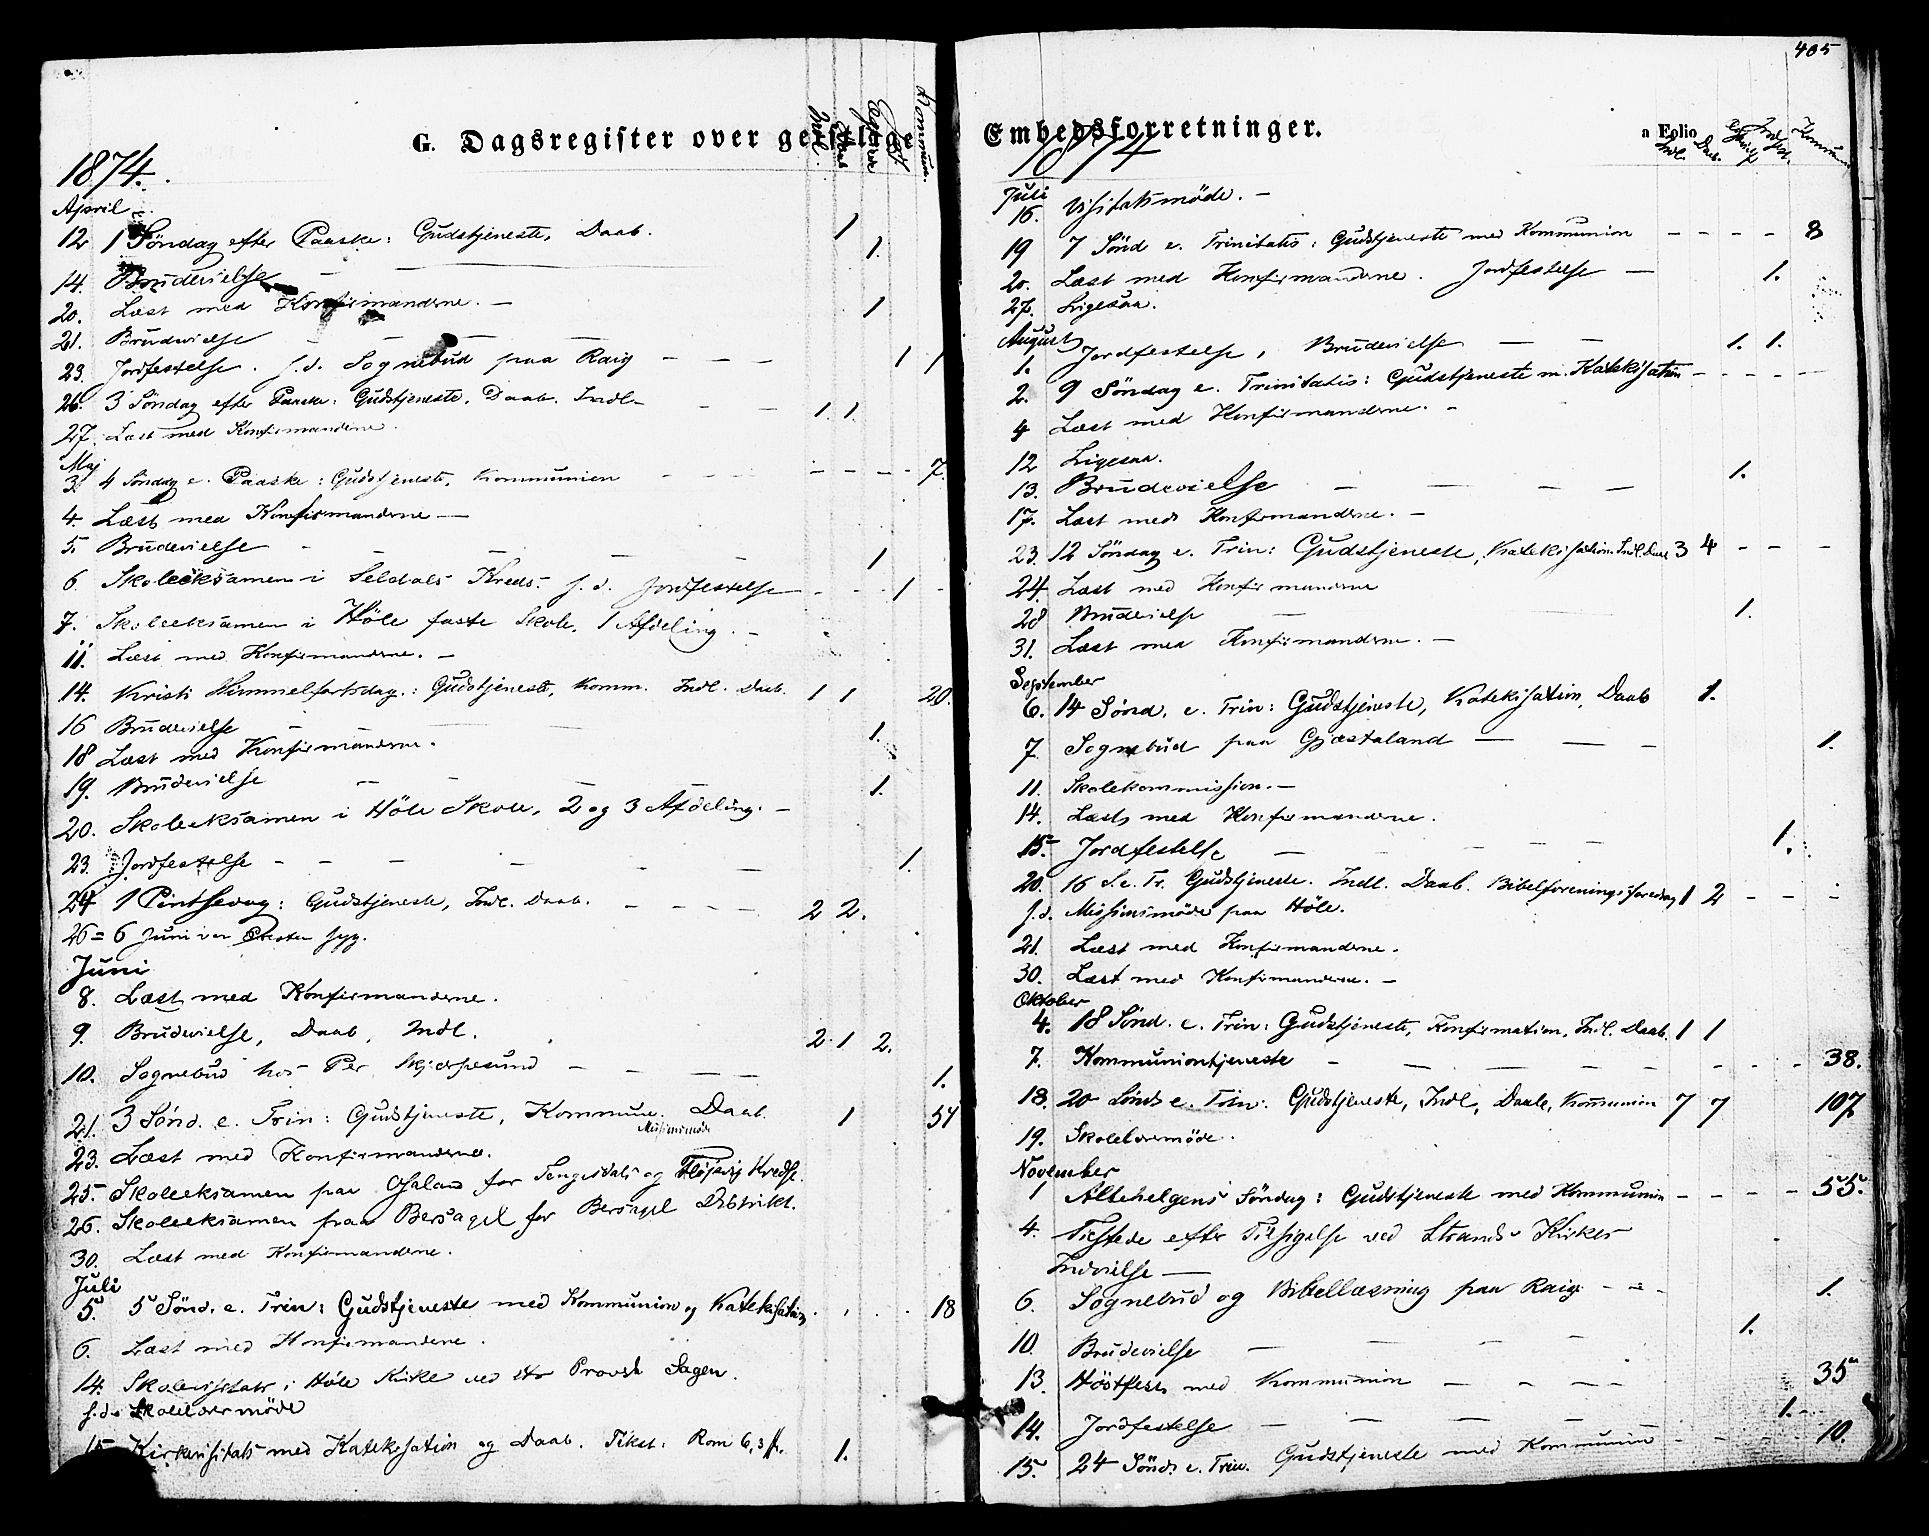 G. Dagsregister over geistlige
Indl. Daab Kommun.
1874.
April
12 1 Söndag efter Paaske: Gudstjeneste, Daab. 1
14. Brudevielse — — 1.
20. Læst med Konfirmanderne. —
21. Brudevielse — — — — 1
23. Jordfestelse. s.d. Sognebud paa Raig — — — 1 1
26. 3 Söndag efter Paaske: Gudstjeneste, Daab. Indl — — — 1. 1.
27. Læst med Konfirmanderne.
Maj
3. 4 Söndag e. Paaske: Gudstjeneste, Kommunion — — — — 7.
4. Læst med Konfirmanderne —
5. Brudevielse — — — — — 1
6. Skoleeksamen i Seldals Kreds. s.d. Jordfestelse — — — 1 -
7. Skoleeksamen i Höle faste Skole, 1 Afdeling. —
11. Læst med Konfirmanderne. —
14. Kristi Himmelfartsdag: Gudstjeneste, Komm. Indl. Daab. 1 1 20.
16 Brudevielse — — 1.
18 Læst med Konfirmanderne.
19. Brudevielse — — — — 1.
20. Skoleeksamen i Höle Skole, 2 og 3 Afdeling. —
23. Jordfestelse — — — — — — 1.
24 1 Pintsedag: Gudstjeneste, Indl. Daab. — — — — 2 2.
26 = 6 Juni var Præsten syg.
Juni
8. Læst med Konfirmanderne.
9. Brudevielse, Daab, Indl. 2. 1 2.
10. Sognebud hos Per — — — — 1.
21. 3 Sönd. e. Trin: Gudstjeneste, Kommun. Daab. 1 54
Missionsmöde
23. Læst med Konfirmanderne.
25. Skoleeksamen paa for Tengesdals og Kredse.
26. Skoleeksamen paa Bersagel for Bersagel Distrikt.
30. Læst med Konfirmanderne.
Juli
5. 5 Sönd. e. Trin: Gudstjeneste med Kommunion og Katekisation . . . . 18
6. Læst med Konfirmanderne.
14. Skolevisitats i Höle Kirke ved Hr Provst Sagen.
s.d. Skolelærermöde
15. Kirkevisitats med Katekisation og Daab. Tekst: Rom 6, 3 ff. 1.
405
Embedsforretninger.
a Folio
1874
Indl. Daab. Jordf. Kommun
Juli
16. Visitatsmöde. —
19 7 Sönd e. Trinitatis: Gudstjeneste med Kommunion — — — — 8
20. Læst med Konfirmanderne. Jordfestelse — 1.
27. Ligesaa.
August
1. Jordfestelse, Brudevielse — — 1. 1.
2. 9 Söndag e. Trinitatis: Gudstjeneste m. Katekisation — — — — —
4 Læst med Konfirmanderne. —
12 Ligesaa.
13. Brudevielse — — — — 1.
17. Læst med Konfirmanderne. —
23. 12 Söndag e. Trin: Gudstjeneste, Katekisation. Indl. Daab 3 4 — — —
24. Læst med Konfirmanderne
28 Brudevielse — — 1.
31. Læst med Konfirmanderne. —
September
6. 14 Sönd. e. Trin: Gudstjeneste, Katekisation, Daab 1.
7. Sognebud paa Gjæstaland — — — 1.
11. Skolekommission. —
14. Læst med Konfirmanderne.
15. Jordfestelse — — — — — 1.
20. 16 S. e. Tr. Gudstjeneste. Indl. Daab. Bibelforenings foredrag 1 2 — — —
s.d. Missionsmöde paa Höle.
21. Læst med Konfirmanderne.
30. Læst med Konfirmanderne. —
Oktober
4. 18 Sönd. e. Trin: Gudstjeneste, Konfirmation, Indl. Daab. 1 1
7. Kommuniontjeneste — — — — — — — — 38.
18. 20 Sönd e. Trin. Gudstjeneste, Indl, Daab, Kommunion 7 7 107
19. Skolelærermöde.
November
1 Allehelgens Söndag: Gudstjeneste med Kommunion — — — — 55.
4. Tilstede efter Tilsigelse ved Strands Kirkes
Indvielse —
6. Sognebud og Bibellæsning paa Raig — — — 1.
10. Brudevielse — — — — 1.
13. Höstfest med Kommunion — — — — 35
14. Jordfestelse — — — — — 1. -
15. 24 Sönd. e. Trin. Gudstjeneste med Kommunion — — — — 10.